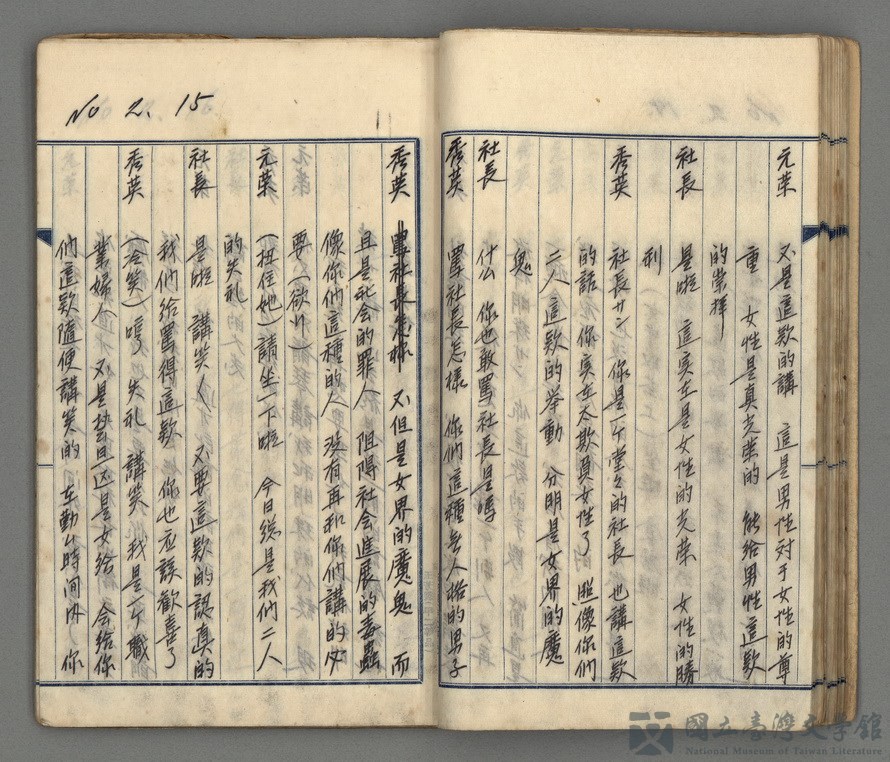 元荣 不是這款的講 這是男性对于女性的尊
重 女性是真光荣的 能給男性這款
的崇拜
社長 是啦 這实在是女性的光荣 女性的勝
利
秀英 社長サン 你是一个堂々的社長 也講這款
的話 你实在太欺負女性了 照像你們
二人這款的举動 分明是女界的魔
鬼
社長 什么 你也敢罵社長是嗎
秀英 罵社長怎樣 你們這種無人格的男子
No 2. 15
秀英 罵社長怎樣 不但是女界的魔鬼 而
且是社会的罪人 阻碍社会進展的毒蟲
像你們這種的人 沒有再和你們講的必
要（欲行）
元荣（扭住她）請坐一下啦 今日総是我們二人
的失礼
社長 是啦 講笑〱 不要這款的認真的
我們給罵得這款 你也应該歡喜了
秀英（冷笑）哼 失礼 講笑 我是一个職
業婦人 不是芸旦 是女給 会給你
們這款隨便講笑的 在勤ム時间内 你
國立臺灣文學館
National Museum of Taiwan Literature